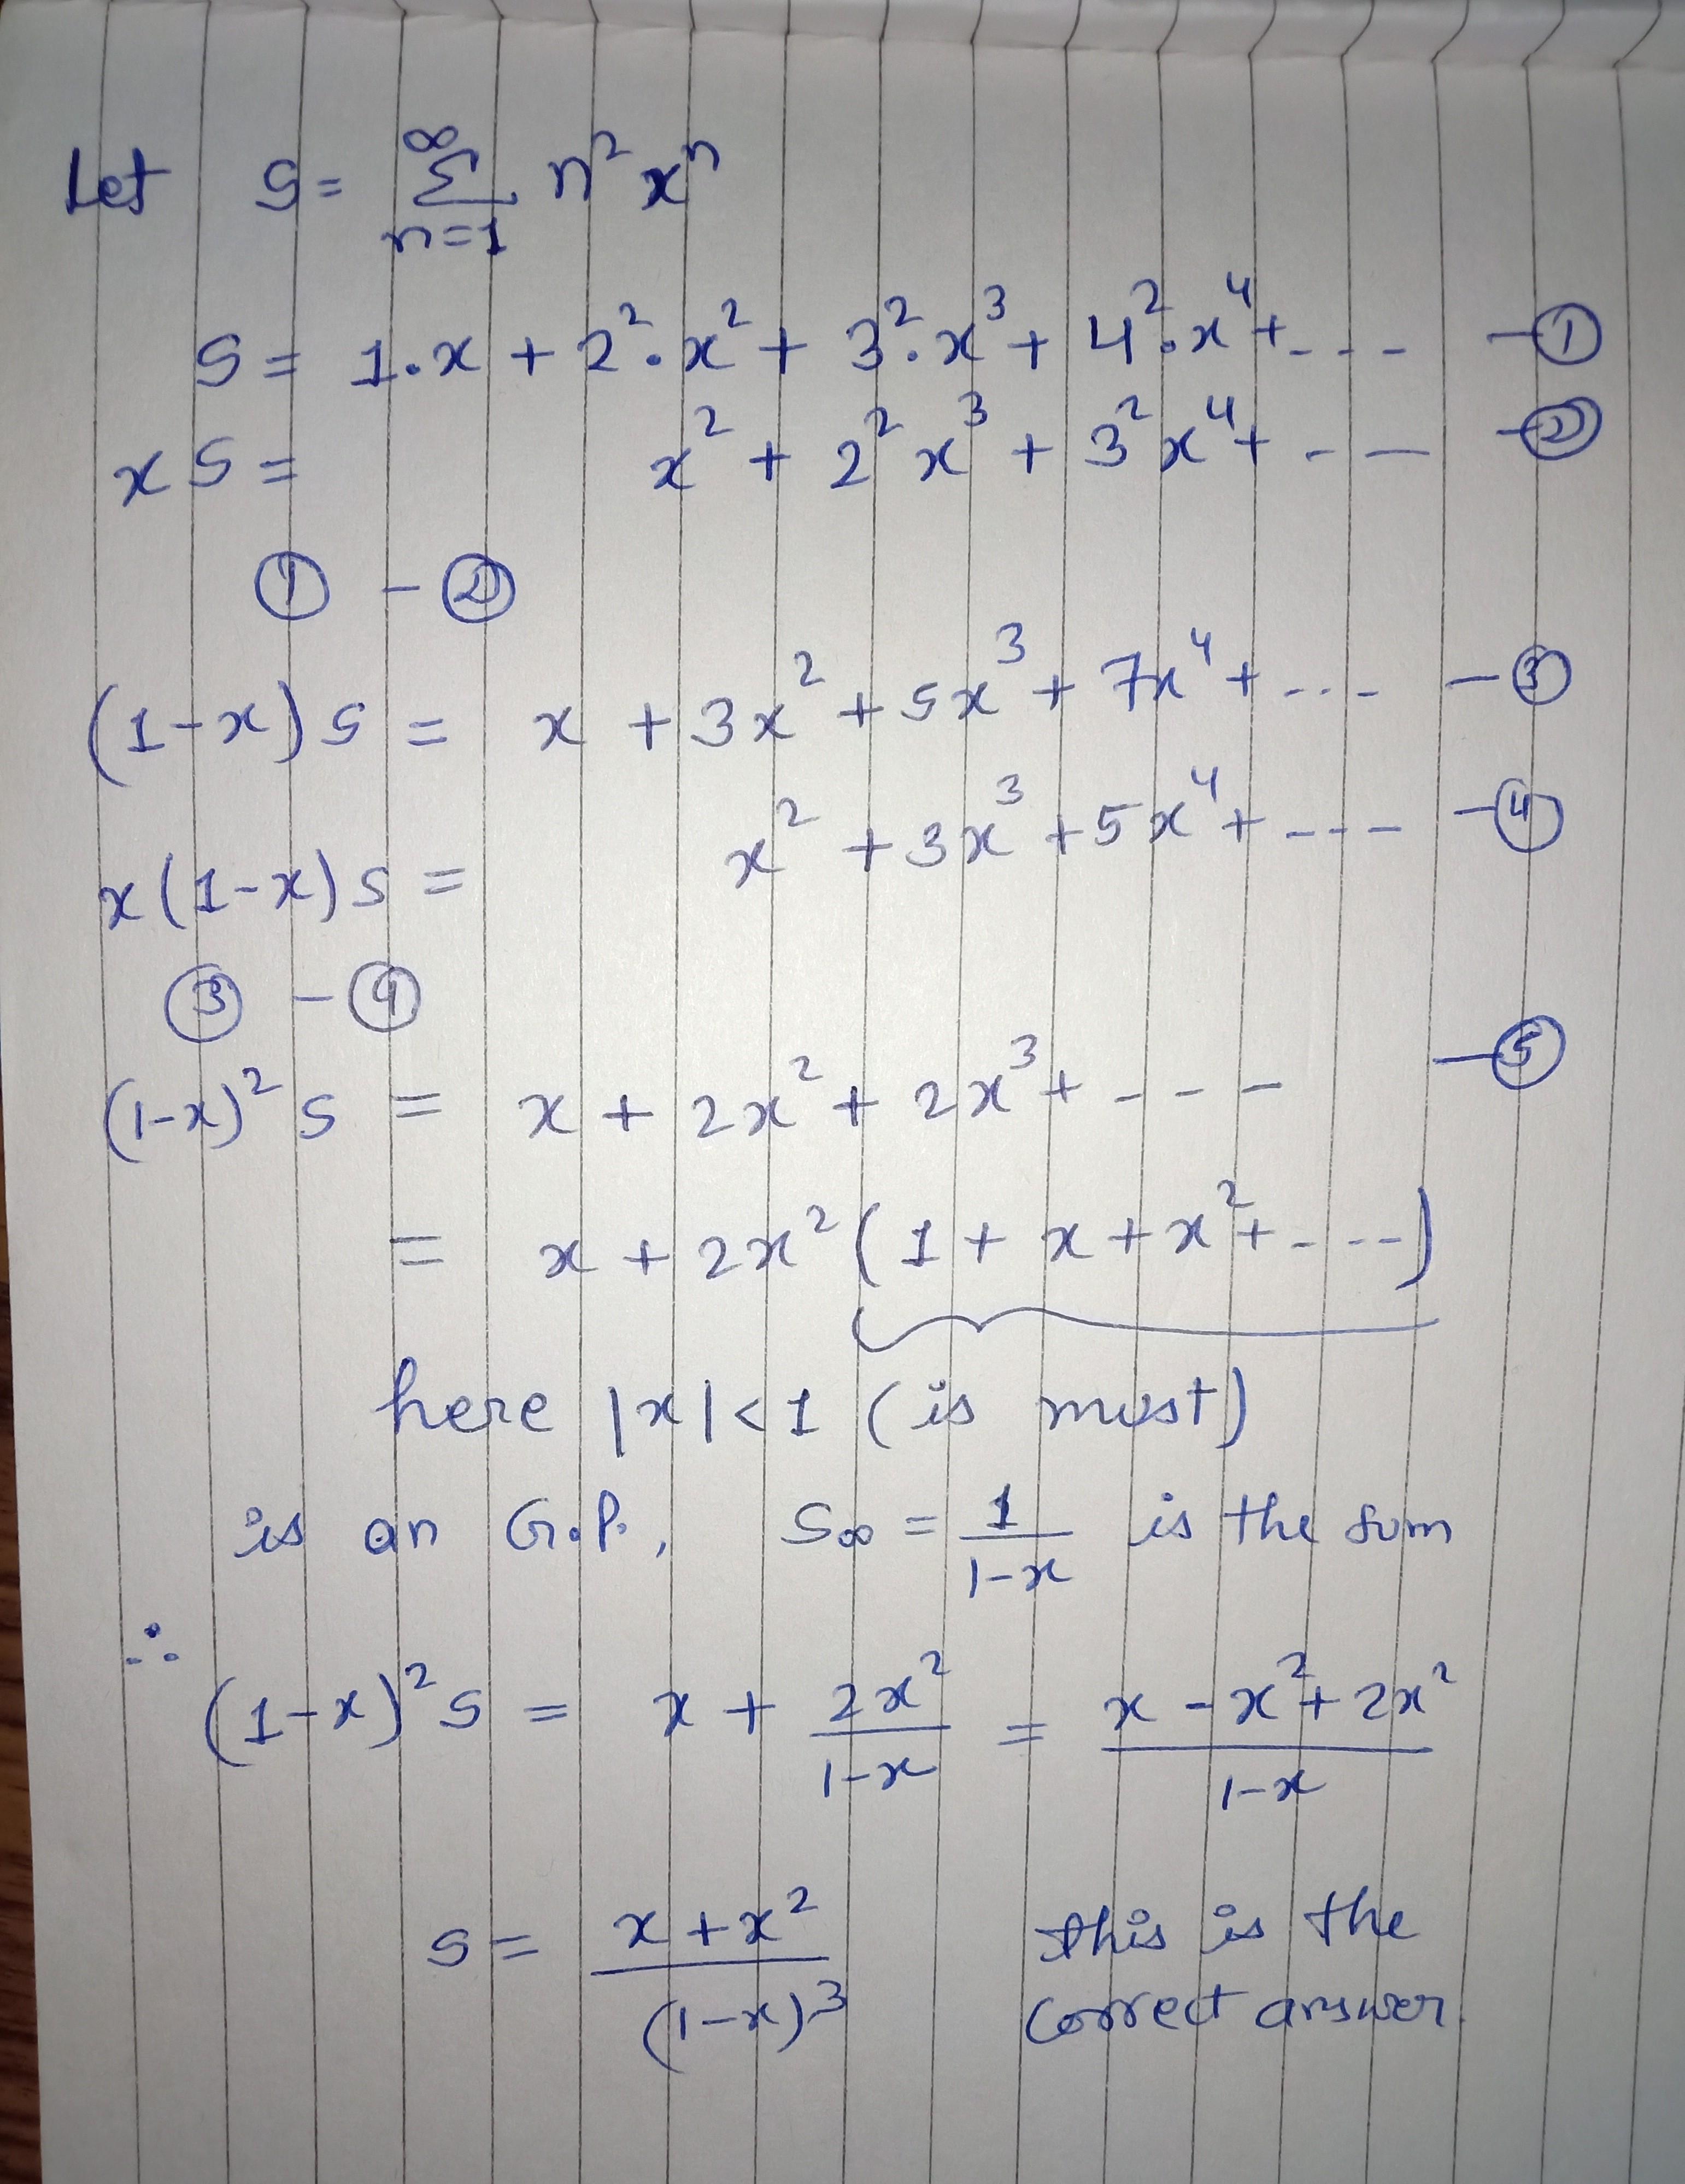 Let S = ∞ Σ n=1 n² xⁿ
S = 1·x + 2²·x² + 3²·x³ + 4²·x⁴ + ---- —①
xS = x² + 2²x³ + 3²x⁴ + --- —②
① - ②
(1-x)S = x + 3x² + 5x³ + 7x⁴ + ---- —③
x(1-x)S = x² + 3x³ + 5x⁴ + ---- —④
③ - ④
(1-x)² S = x + 2x² + 2x³ + ---- —⑤
= x + 2x² (1 + x + x² + ----)
here |x| < 1 (is must)
is an G.P., S∞ = 1/(1-x) is the sum
∴ (1-x)² S = x + 2x²/(1-x) = (x - x² + 2x²)/(1-x)
S = (x + x²)/(1-x)³ this is the
correct answer.